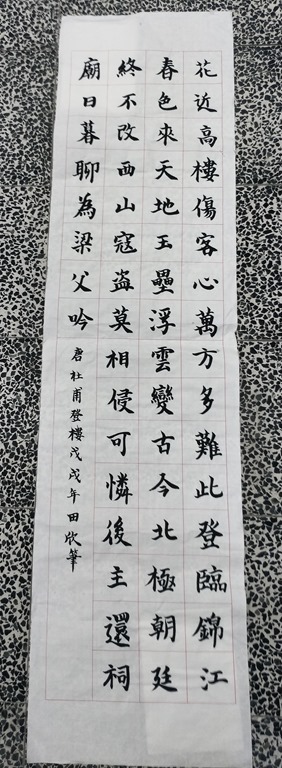 花近高樓傷客心萬方多難此登臨錦江
春色來天地玉壘浮雲變古今北極朝廷
終不改西山寇盗莫相侵可憐後主還祠
廟日暮聊為梁父吟 唐杜甫登樓戊戌年田欣筆